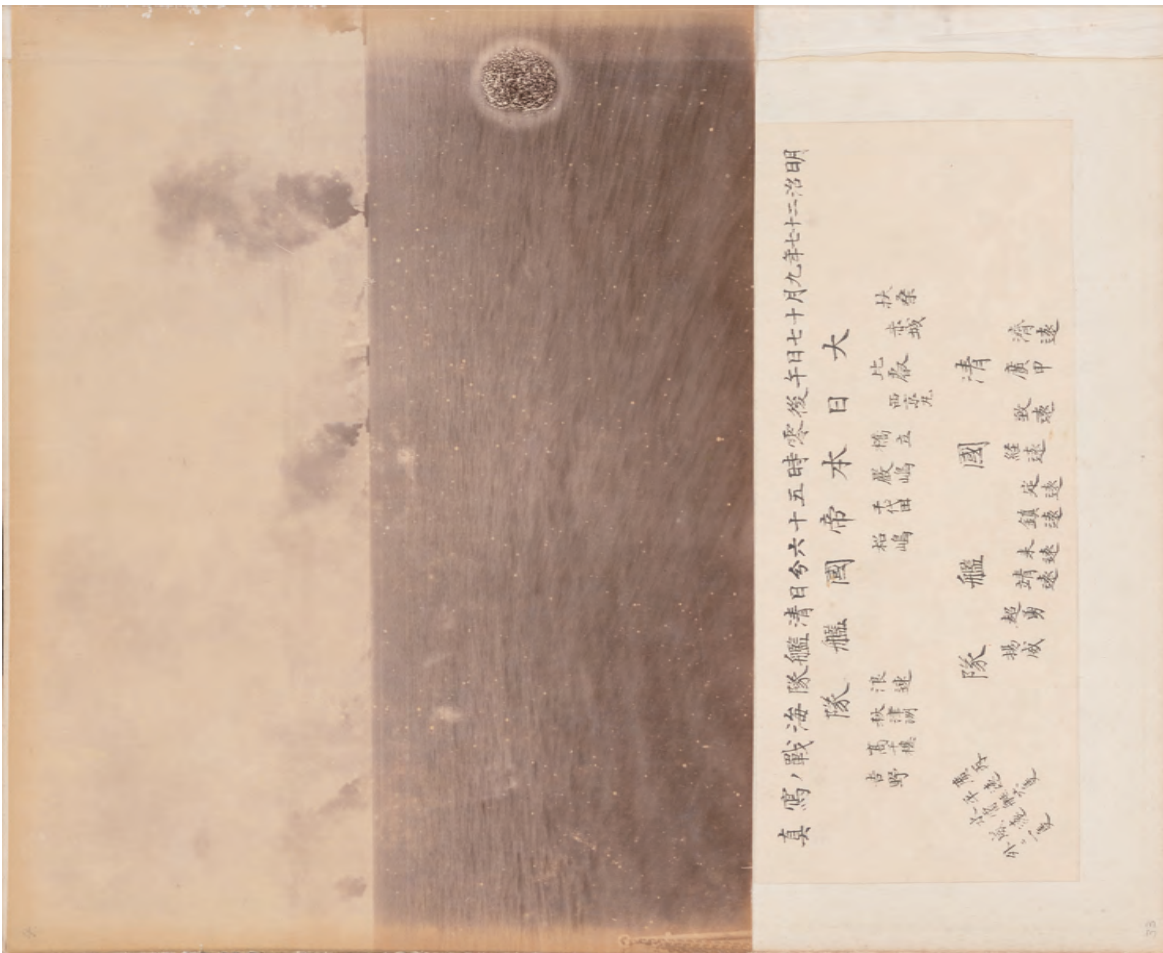 明治二十七年九月十七日午後零時五十六分日清艦隊海戰ノ寫真
大日本帝國艦隊
扶桑 赤城 比叡 西京丸 橋立 嚴嶋 千代田 松嶋 浪速 秋津洲 高千穂 吉野
清國艦隊
濟遠 廣甲 致遠 經遠 定遠 鎮遠 来遠 靖遠 超勇 揚威
33